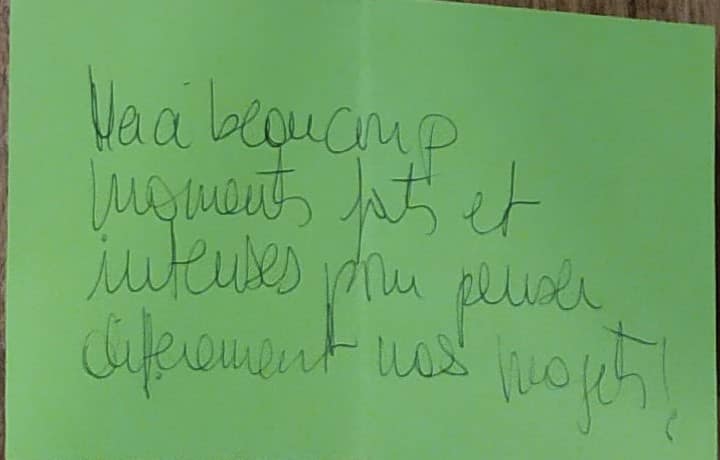 Merci beaucoup
moments forts et
intenses pour penser
différemment nos projets!